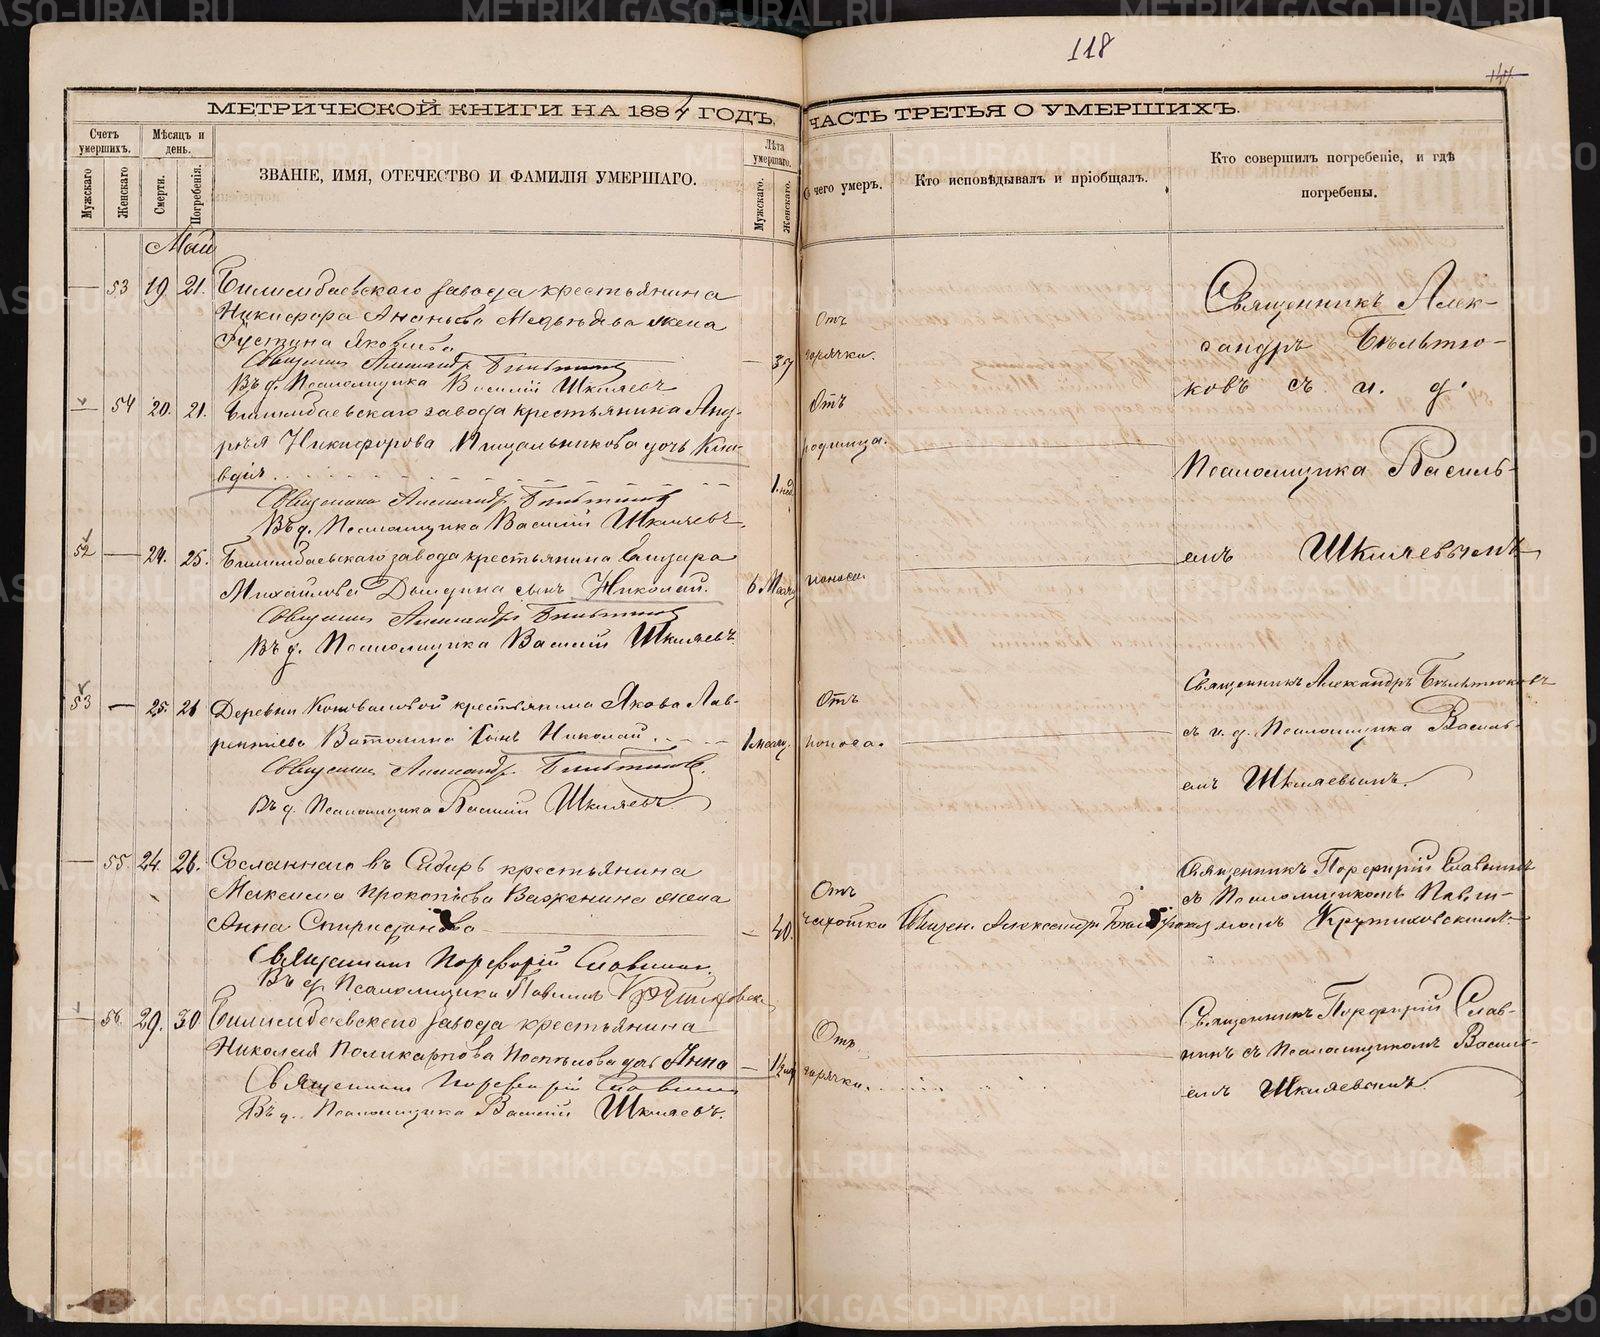 118
МЕТРИЧЕСКОЙ КНИГИ НА 1884 ГОДЪ, ЧАСТЬ ТРЕТЬЯ О УМЕРШИХЪ.
Счетъ умершихъ.
Мужскаго
Женскаго
Мѣсяцъ и день.
Смерти.
Погребенія.
ЗВАНІЕ, ИМЯ, ОТЕЧЕСТВО И ФАМИЛІЯ УМЕРШАГО.
Лѣта умершаго.
Мужскаго.
Женскаго.
чего умеръ.
Кто исповѣдывалъ и пріобщалъ.
Кто совершилъ погребеніе, и гдѣ погребены.
Май
— 53 19 21. Билимбаевскаго завода крестьянина
Никифора Ананьева Медвѣдева жена
Яковлева
Священникъ Александръ Бѣльтюковъ
Въ д. Псаломщика Василій Шкляевъ
— 37
Отъ
горячки.
Священникъ Алек-
сандръ Бѣльтю-
ковъ съ и. д.
Псаломщика Василь-
емъ Шкляевымъ
— 54 20. 21. Билимбаевскаго завода крестьянина Анд-
рея Никифорова Пищальникова дочь Кла-
вдія
Священникъ Александръ Бѣльтюковъ
Въ д. Псаломщика Василій Шкляевъ.
1. нед.
Отъ
родимца.
52 — 24. 25. Билимбаевскаго завода крестьянина Елизара
Михайлова Дылдина сынъ Николай.
Священникъ Александръ Бѣльтюковъ
Въ д. Псаломщика Василій Шкляевъ.
6 Мѣсяц
поноса
53 — 25. 26 Деревни Коноваловой крестьянина Якова Лав-
рентьева Ватолина сынъ Николай.
Священникъ Александръ Бѣльтюковъ.
Въ д. Псаломщика Василій Шкляевъ
1 мѣсяц.
Отъ
поноса.
Священникъ Александръ Бѣльтюковъ
съ и. д. Псаломщика Василь-
емъ Шкляевымъ.
— 55 24. 26. Сосланнаго въ Сибирь крестьянина
Максима Прокопьева Важенина жена
Анна Спиридонова
Священникъ Порфирій Славнинъ.
Въ д. Псаломщика Павелъ
— 40.
Отъ
чахотки
Священ. Александръ
Священникъ Порфирій Славнинъ
съ Псаломщикомъ Павл-
омъ Крутиховскимъ
— 56. 29. 30 Билимбаевскаго завода крестьянина
Николая Поликарпова Поспѣлова дочь Анна
Священникъ Порфирій Славнинъ
Въ д. Псаломщика Василій Шкляевъ.
Отъ
горячки.
Священникъ Порфирій Слав-
нинъ съ Псаломщикомъ Васил-
емъ Шкляевымъ.
METRIKI.GASO-URAL.RU